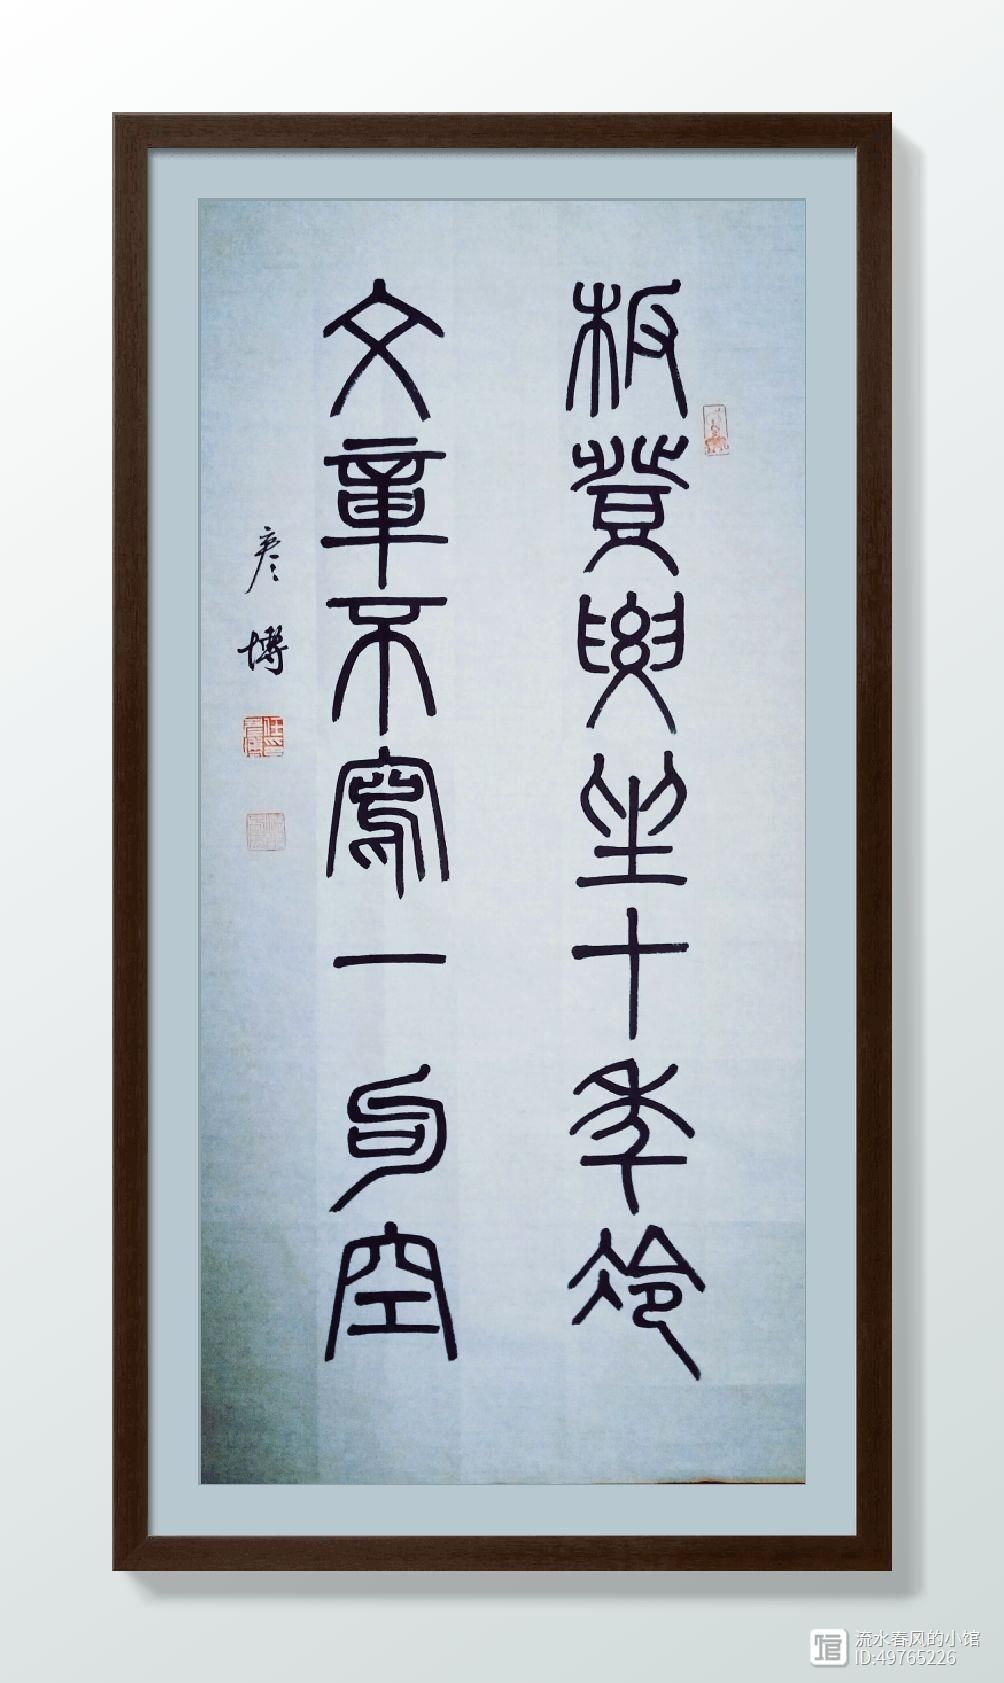 板凳要坐十年冷
文章不寫一句空
彦博
流水春风的小馆
ID:49765226